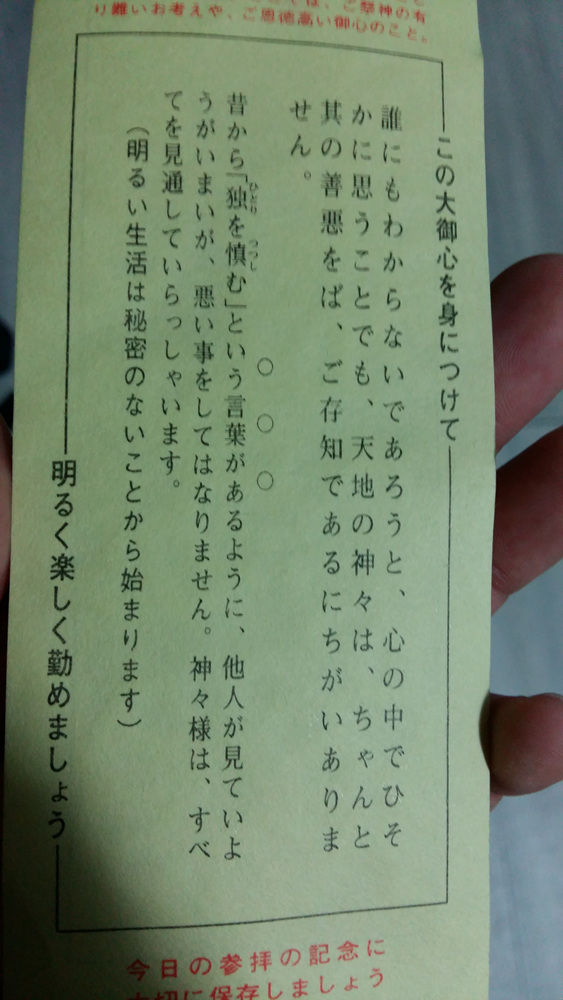 は、ご祭神の有
り難いお考えや、ご恩徳高い御心のこと。
この大御心を身につけて
誰にもわからないであろうと、心の中でひそ
かに思うことでも、天地の神々は、ちゃんと
其の善悪をば、ご存知であるにちがいありま
せん。
○ ○ ○
昔から「独を慎む」という言葉があるように、他人が見ていよ
ひとり つつし
うがいまいが、悪い事をしてはなりません。神々様は、すべ
てを見通していらっしゃいます。
(明るい生活は秘密のないことから始まります)
明るく楽しく勤めましょう
今日の参拝の記念に
大切に保存しましょう